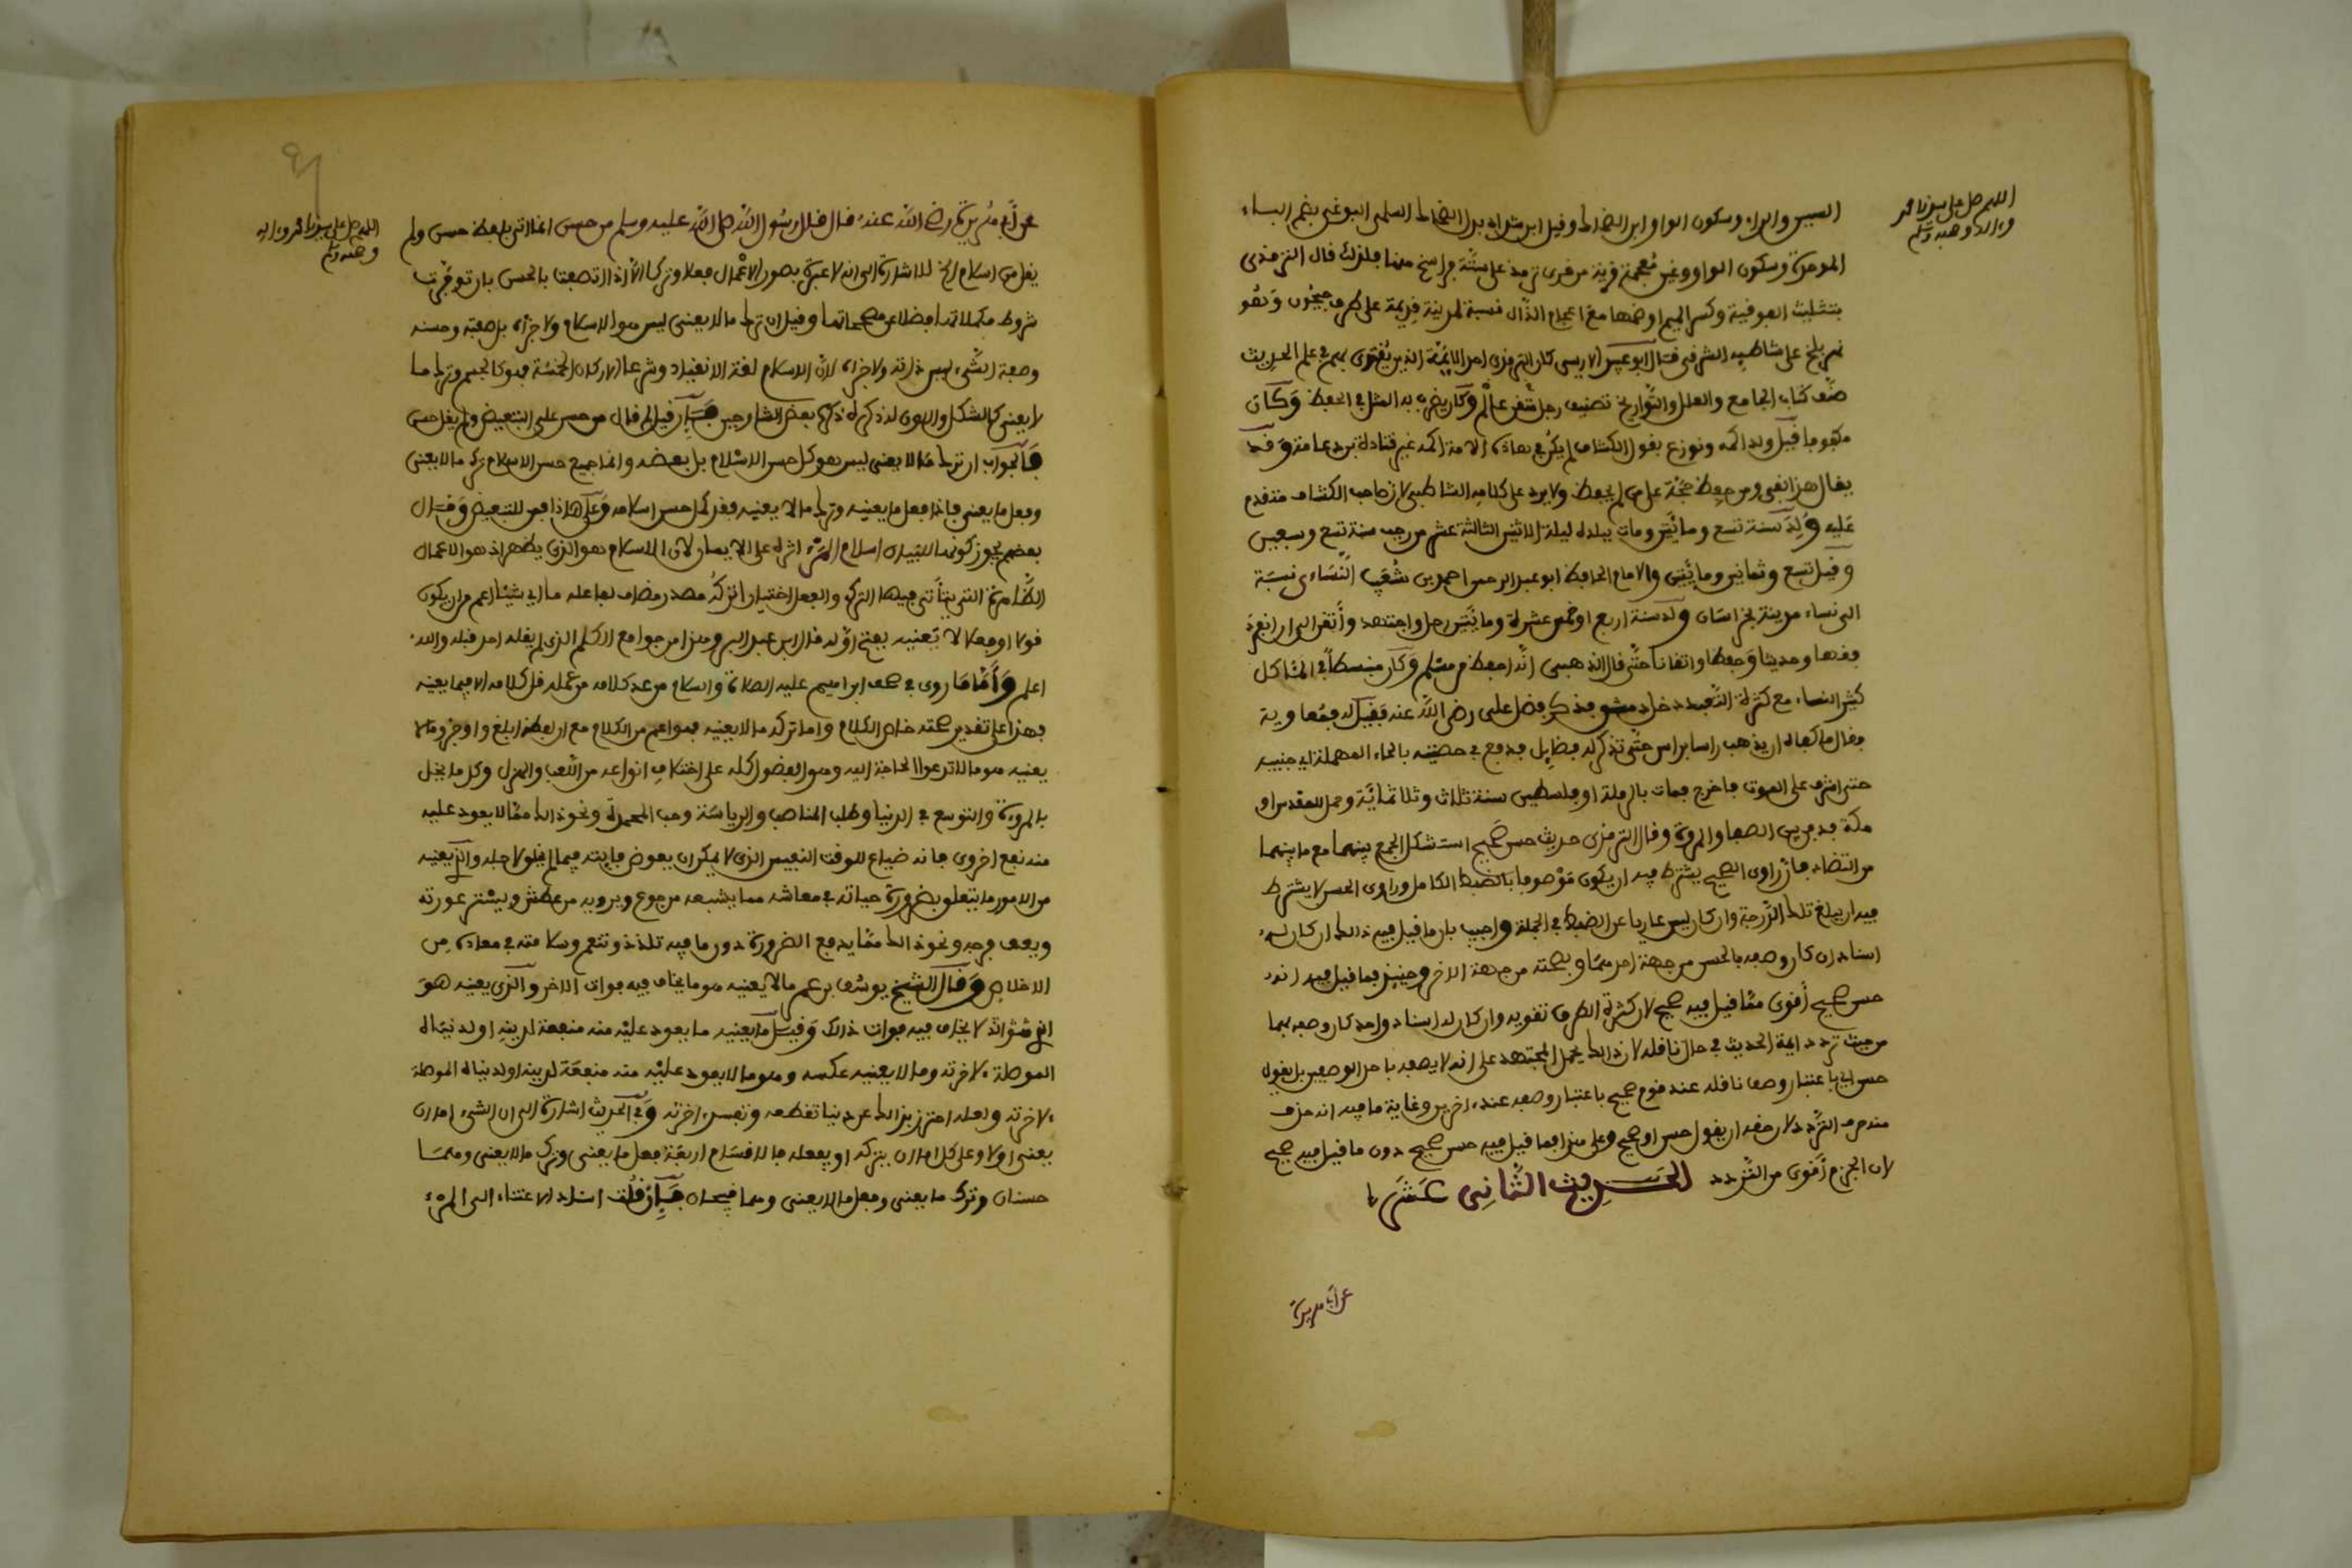 اللهم صل على سيدنا محمد
وءاله وصحبه وسلم
السين والراء وسكون الواو ابن الضحاك وقيل ابن شداد بدل الضحاك السلمي البوغي بضم الباء
الموحدة وسكون الواو وغين معجمة قرية من قرى ترمذ على ستة فراسخ منها فلذلك قال الترمذي
بتثليث الفوقية وكسر الميم او ضمها مع اعجام الذال نسبة لمدينة قديمة على طرف جيحون وهو
نهر بلخ على شاطيه الشرقي قال ابو عيسى الادريسي كان الترمذي احد الايمة الذين يقتدى بهم في علم الحديث
صنف كتاب الجامع والعلل والتواريخ تصنيف رجل متقن عالم وكان يضرب به المثل في الحفظ وكان
مكفوفا قيل ولد اكمه ونوزع بقول الكشاف لم يكن في هاذه الامة اكمه غير قتادة بن دعامة وقد
يقال هذا نفي ومن حفظ حجة على من لم يحفظ ولا يرد على كلامه الشاطبي لان صاحب الكشاف متقدم
عليه ولد سنة تسع ومائتين ومات ببلده ليلة الاثنين الثالثة عشر من رجب سنة تسع وسبعين
وقيل تسع وثمانين ومائتين والامام الحافظ ابو عبد الرحمن احمد بن شعيب النساءي نسبة
الى نساء مدينة بخراسان ولد سنة اربع او خمس عشرة ومائتين رحل واجتهد وأتقن الى ان انفرد
فقها وحديثا وحفظا واتقانا حتى قال الذهبي انه احفظ من مسلم وكان منبسطا في الماكل
كثير النساء مع كثرة التعبد دخل دمشق فذكر فضل علي رضي الله عنه فقيل له فمعاوية
فقال ما كفاه ان يذهب راسا براس حتى تذكر له فضايل فدفع في حضنيه بالحاء المهملة اي جنبيه
حتى اشرف على الموت فاخرج فمات بالرملة او فلسطين سنة ثلاث وثلاثمائة وحمل للمقدس او
مكة فدفن بين الصفا والمروة وقال الترمذي حديث حسن صحيح استشكل الجمع بينهما مع ما بينهما
من التضاد فان راوي الصحيح يشترط فيه ان يكون موصوفا بالضبط الكامل وراوي الحسن لا يشترط
فيه ان يبلغ تلك الدرجة وان كان ليس عاريا عن الضبط في الجملة واجيب بان ما قيل فيه ذالك ان كان له
اسنادان كان وصفه بالحسن من جهة احدهما وبصحته من جهة الاخر وحينئذ فما قيل فيه انه
حسن صحيح أقوى مما قيل فيه صحيح لان كثرة الطرق تقويه وان كان له اسناد واحد كان وصفه بهما
من حيث تردد ايمة الحديث في حال ناقله لان ذالك يحمل المجتهد على انه لا يصفه باحد الوصفين بل يقول
حسن اي باعتبار وصف ناقله عند قوم صحيح باعتبار وصفه عند ءاخرين وغاية ما فيه انه حذف
منه حرف التردد لان حقه ان يقول حسن او صحيح وعلى هذا فما قيل فيه حسن صحيح دون ما قيل فيه صحيح
لان الجزم أقوى من التردد الحديث الثاني عشر
عن أبي هريرة
اللهم صل على سيدنا محمد وءاله
وصحبه وسلم
عن أبي هريرة رضي الله عنه قال قال رسول الله صلى الله عليه وسلم من حسن انما اتى بلفظ حسن ولم
يقل من اسلام الخ للاشارة الى انه لا عبرة بصور الاعمال فعلا وتركا الا اذا اتصفت بالحسن بان توفرت
شروط مكملاتها فضلا عن مصححاتها وقيل ان ترك ما لا يعني ليس هو الاسلام ولا جزأه بل صفته وحسنه
وصفة الشيء ليس ذاته ولا جزأه لان الاسلام لغة الانقياد وشرعا الاركان الخمسة فهو كالجسم وترك ما
لا يعني كالشكل واللون له ذكره بعض الشارحين فإن قيل لم قال من حسن على التبعيض ولم يقل حسن
فالجواب ان ترك ما لا يعني ليس هو كل حسن الاسلام بل بعضه وانما جميع حسن الاسلام ترك ما لا يعني
وفعل ما يعني فاذا فعل ما يعنيه وترك ما لا يعنيه فقد كمل حسن اسلامه وعلى هاذا فمن للتبعيض وقال
بعضهم يجوز كونها للبيان اسلام المرء اثره على الايمان لان الاسلام هو الذي يظهر اذ هو الاعمال
الظاهرة التي يتأتى فيها الترك والفعل اختيارا تركه مصدر مضاف لفاعله ما اي شيئا اعم من ان يكون
قولا او فعلا لا يعنيه بفتح اوله قال ابن عبد البر وهذا من جوامع الكلم الذي لم يقله احد قبله والله
اعلم وأما ما روى في صحف ابراهيم عليه الصلاة والسلام من عد كلامه من عمله قل كلامه الا فيما يعنيه
فهذا على تقدير صحته خاص بالكلام واما تركه ما لا يعنيه فهو اعم من الكلام مع ان لفظه ابلغ واوجز وما لا
يعنيه هو ما لا تدعوا الحاجة اليه وهو الفضول كله على اختلاف انواعه من اللعب والهزل وكل ما يخل
بالمروءة والتوسع في الدنيا وطلب المناصب والرياسة وحب المحمدة ونحو ذالك مما لا يعود عليه
منه نفع اخروي فانه ضياع للوقت النفيس الذي لا يمكن ان يعوض فايته فيما لم يخلق لاجله والذي يعنيه
من الامور ما يتعلق بضرورة حياته في معاشه مما يشبعه من جوع ويرويه من عطش ويستر عورته
ويعف فرجه ونحو ذالك مما يدفع الضرورة دون ما فيه تلذذ وتنعم وسلامته في معاده من
الاخلاص وقال الشيخ يوسف بن عمر ما لا يعنيه هو ما يخاف فيه فوات الاخر والذي يعنيه هو
الذي لا يخاف فيه فوات ذالك وقيل ما يعنيه ما يعود عليه منه منفعة لدينه او لدنياه
الموصلة ءلاخرته وما لا يعنيه عكسه وهو ما لا يعود عليه منه منفعة لدينه او لدنياه الموصلة
ءلاخرته ولعله احترز بذالك عن دنيا تقطعه وتفسد ءاخرته وفي الحديث اشارة الى ان الشيء اما ان
يعني او لا وعلى كل اما ان يتركه او يفعله فالاقسام اربعة فعل ما يعني وترك ما لا يعني وهما
حسنان وترك ما يعني وفعل ما لا يعني وهما قبيحان فإن قلت اسناد الاعتناء الى المرء